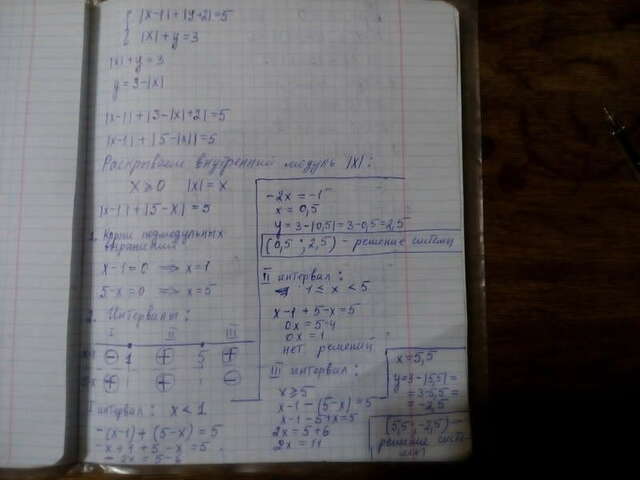 |x-1|+|y+2|=5
|x|+y=3
|x|+y=3
y=3-|x|
|x-1|+|3-|x|+2|=5
|x-1|+|5-|x||=5
Раскрываем внутренний модуль |x|:
x⩾0 |x|=x
|x-1|+|5-x|=5
1. Корни подмодульных
выражений
x-1=0 ⟹ x=1
5-x=0 ⟹ x=5
2. Интервалы:
I II III
⊖ 1 ⊕ 5 ⊕
⊕ ⊕ ⊖
I интервал: x<1
-(x-1)+(5-x)=5
-x+1+5-x=5
-2x=5-6
-2x=-1
x=0,5
y=3-|0,5|=3-0,5=2,5
(0,5; 2,5) - решение системы
II интервал:
1≤x<5
x-1+5-x=5
0x=5-4
0x=1
нет решений
III интервал:
x⩾5
x-1-(5-x)=5
x-1-5+x=5
2x=5+6
2x=11
x=5,5
y=3-|5,5|=
=3-5,5=
=-2,5
(5,5; -2,5)-
решение систе-
мы